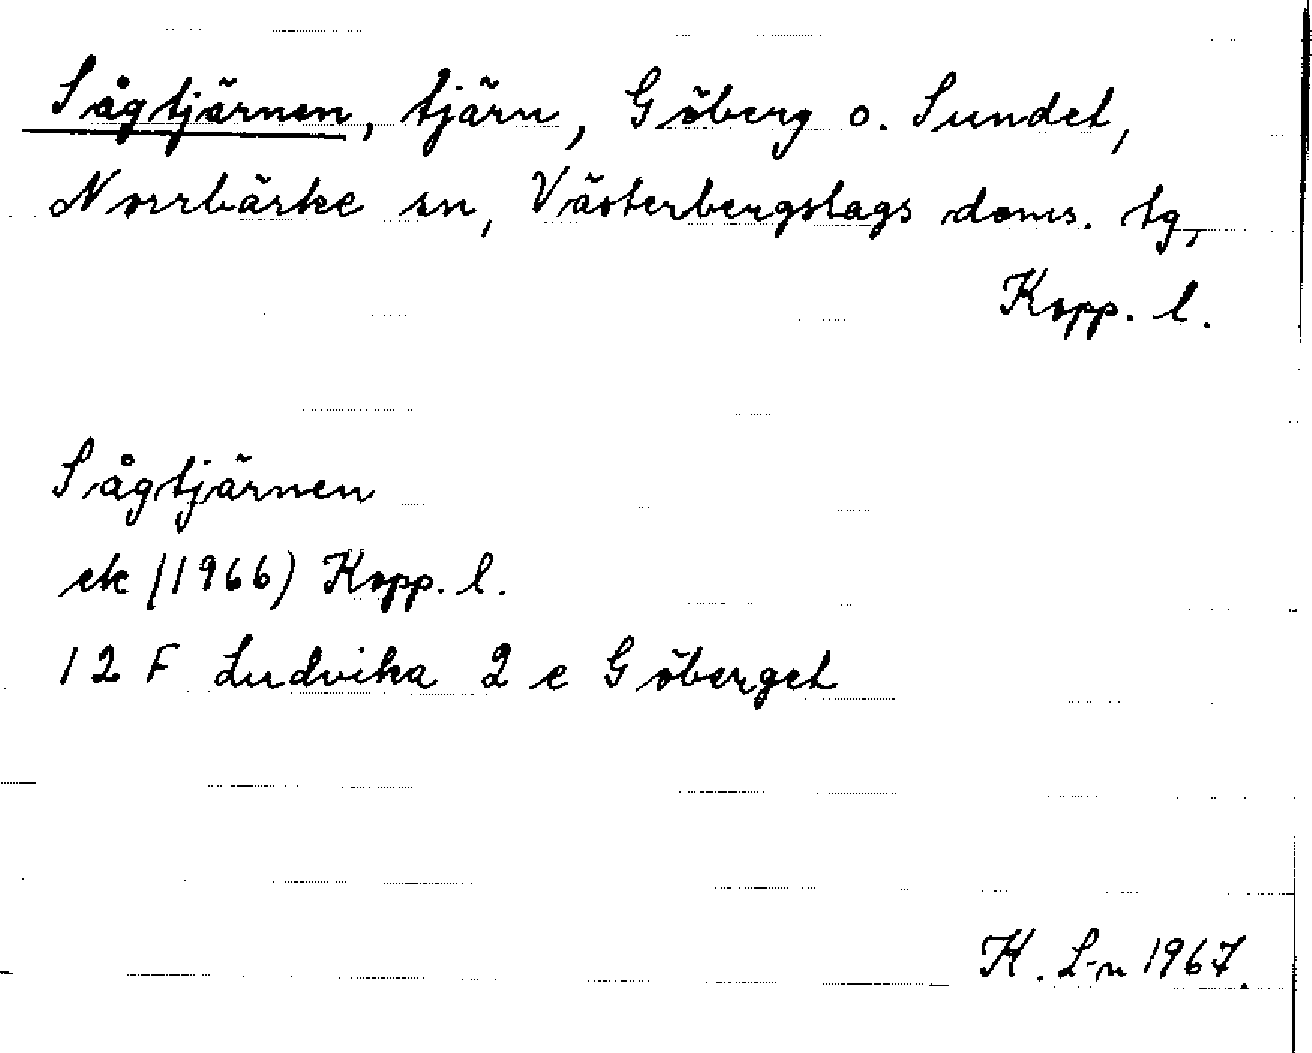 Sågtjärnen, tjärn, Göberg o. Sundet,
Norrbärke sn, Västerbergslags doms. tg,
Kopp. l.
Sågtjärnen
ek (1966) Kopp. l.
12 F Ludvika 2 e Göberget
K. L-n 1967.